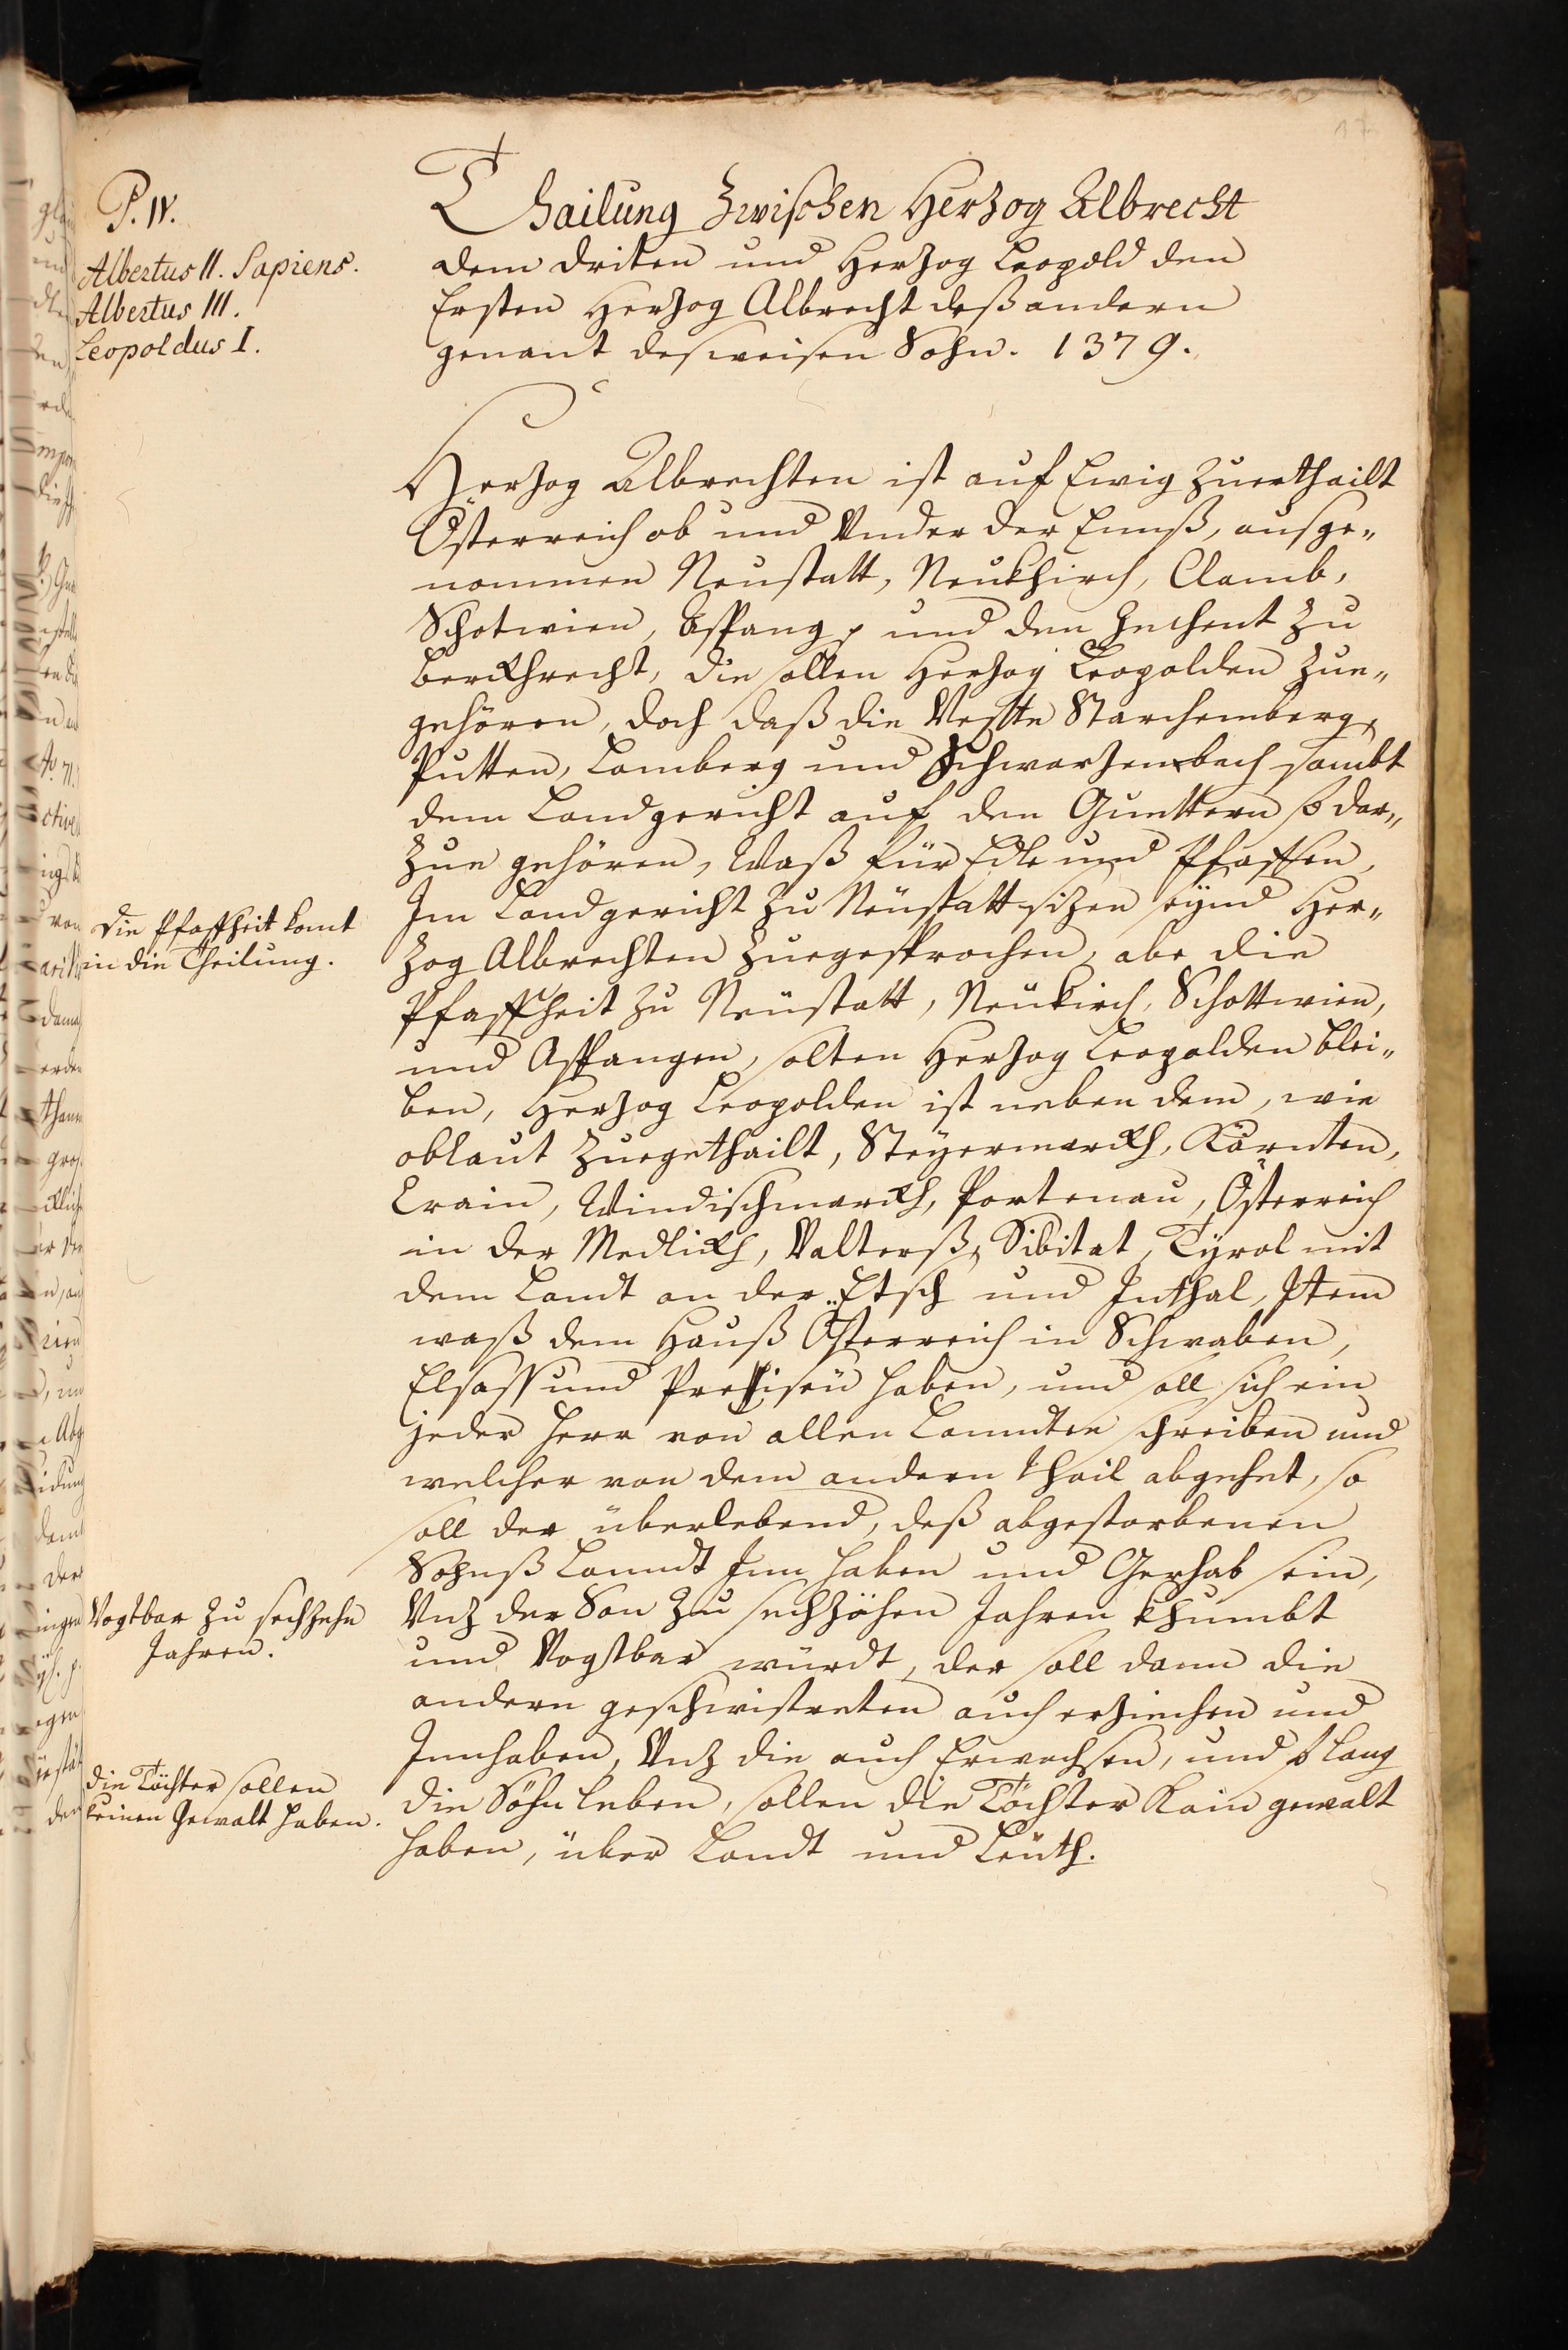 17
P. IV.
Albertus II. Sapiens.
Albertus III.
Leopoldus I.
Thailung Zwischen Herzog Albrecht
dem driten und Herzog Leopold den
Ersten Herzog Albrecht deß andern
genant des weisen Sohn. 1379.
Herzog Albrechten ist auf Ewig zuerthailt
Österreich ob und Vnder der Ennß, ausge„
nommen Neustatt, Neukhirch, Clamb,
Schotwien, Aspang, und den Zechent zu
berckhrecht, die sollen Herzog Leopolden zue„
gehören, doch daß die Veste Starchemberg,
Putten, Lomberg und Schwarzenbach sambt
dem Landgericht auf den Guettern so dar„
Zue gehören, Waß für Edle und Pfaffen,
Im Landgericht zu Neüstatt sizen seynd Her„
zog Albrechten zuegesprochen, abe die
Pfaffheit zu Neüstatt, Neukirch, Schottwien,
und Aspangen, solten Herzog Leopolden blei„
ben, Herzog Leopolden ist neben dem, wie
oblaut zuegethailt, Steyermarckh, Kärnten,
Crain, Windischmarckh, Portenau, Österreich
in der Medlickh, Valterß, Sibitat, Tyrol mit
dem Landt an der Etsch und Inthal, Item
waß dem Hauß Österreich in Schwaben,
Elsass und haben, und soll sich ein
jeder Herr von allen Lanndten schreiben und
welcher von dem andern thail abgehet, so
soll der überlebend, deß abgestorbenen
Sohnß Lanndt Inn haben und Gerhab sein,
Vnz der Son zu sechzöhen Jahren khumbt
und Vogtbar würdt, der soll dann die
andern geschwistreten auch erziechen und
Innhaben, Vnz die auch Erwachsen, und so lang
die Söhn leben, sollen die Töchter Kain gewalt
haben, über Landt und Leüth.
Die Pfaffheit komt
in die Theilung.
Vogtbar zu sechzehn
Jahren.
die Töchter sollen
keinen Gewalt haben.